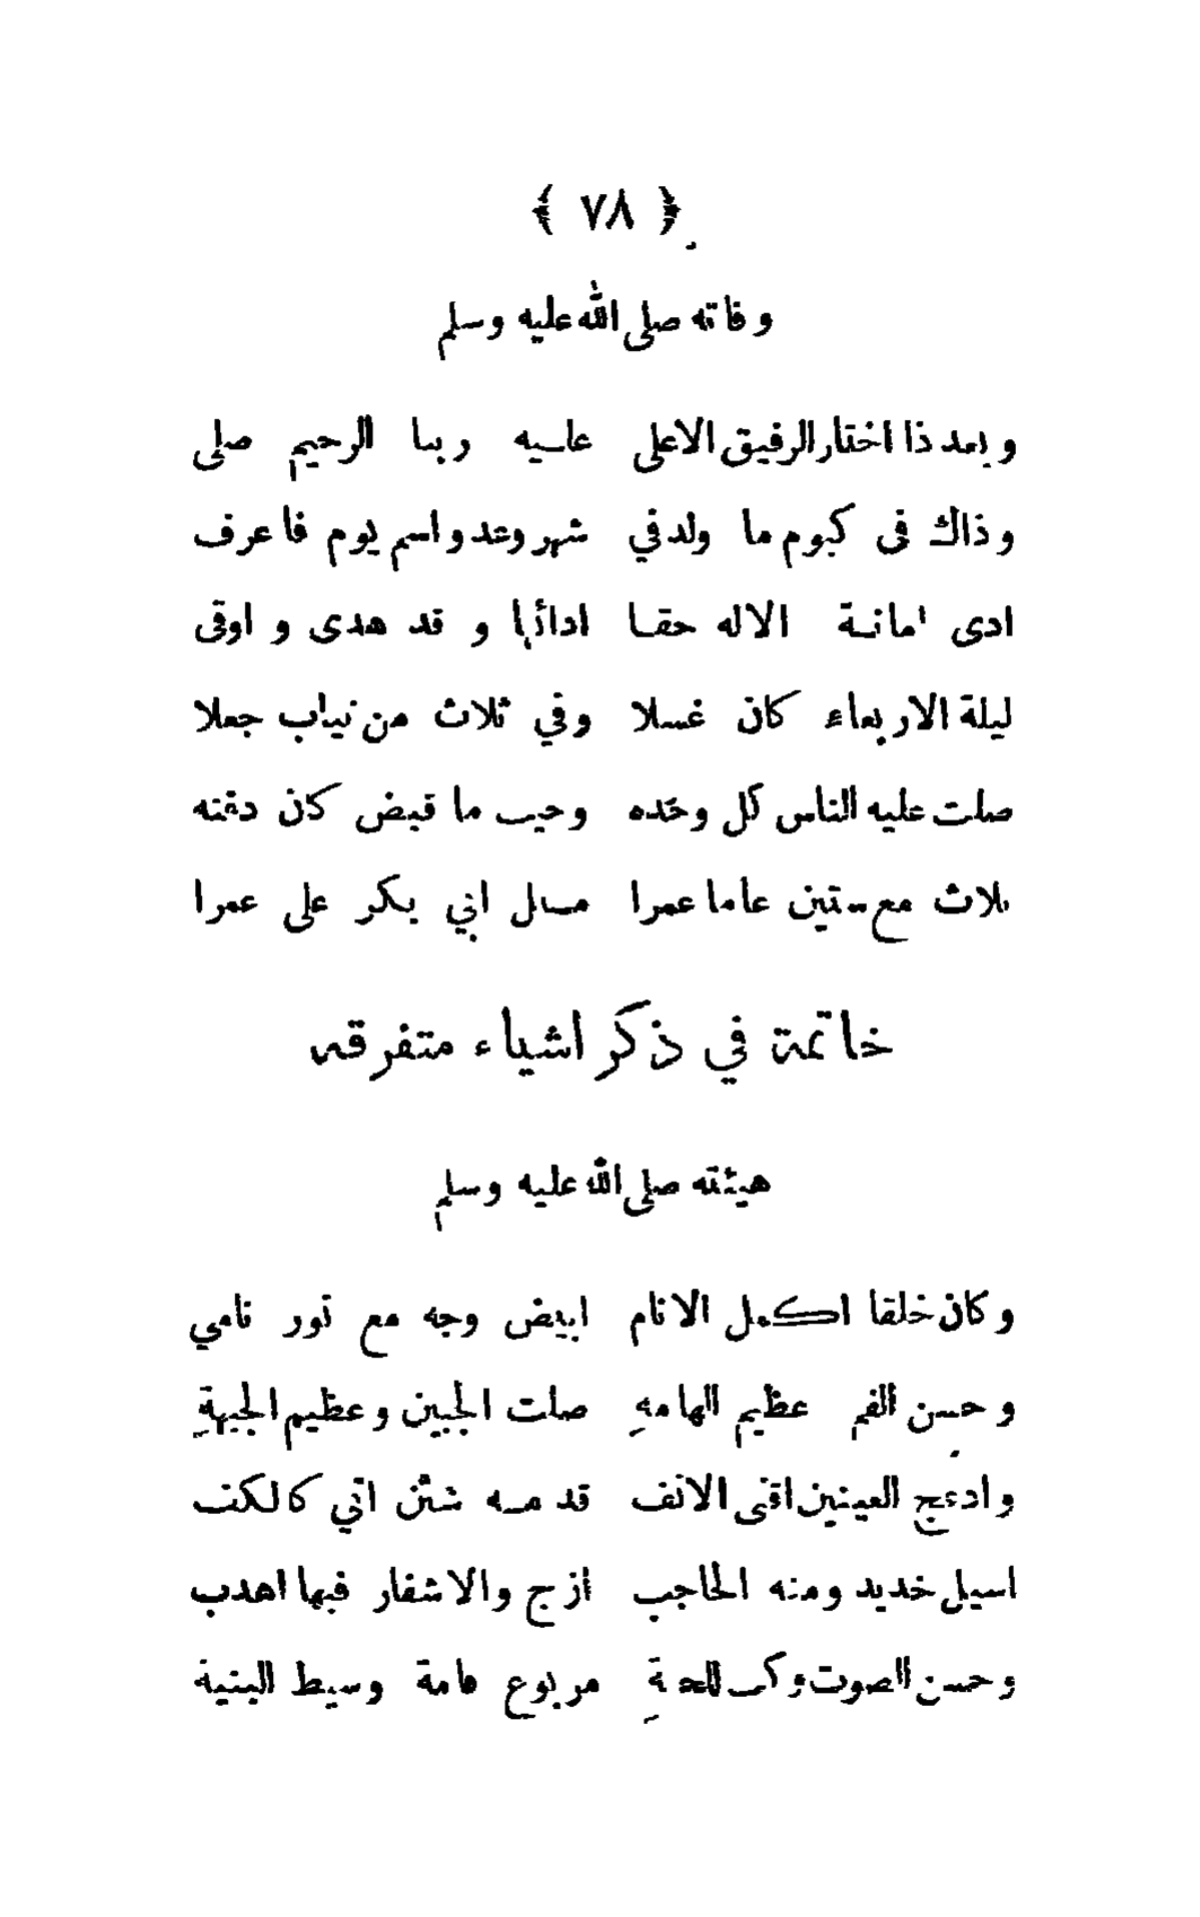 ﴿ ٧٨ ﴾
وفاته صلى الله عليه وسلم
وبعد ذا اختار الرفيق الاعلى عليه ربنا الرحيم صلى
وذاك فى كيوم ما ولد في شهر وعد واسم يوم فاعرف
ادى امانة الاله حقا ادائها و قد هدى و اوقى
ليلة الاربعاء كان غسلا وفي ثلاث من ثياب جعلا
صلت عليه الناس كل وحده وحيث ما قبض كان دفنه
ثلاث مع ستين عاما عمرا مسال ابي بكر على عمرا
خاتمة في ذكر اشياء متفرقه
هيئته صلى الله عليه وسلم
وكان خلقا اكمل الانام ابيض وجه مع نور نامي
وحسن الفم عظيم الهامهِ صلت الجبين وعظيم الجبهةِ
وادعج العينين اقنى الانف قدمه شثن اتي كالكف
اسيل خديد ومنه الحاجب ازج والاشفار فيها اهدب
وحسن الصوت مربوع قامة وسيط البنية